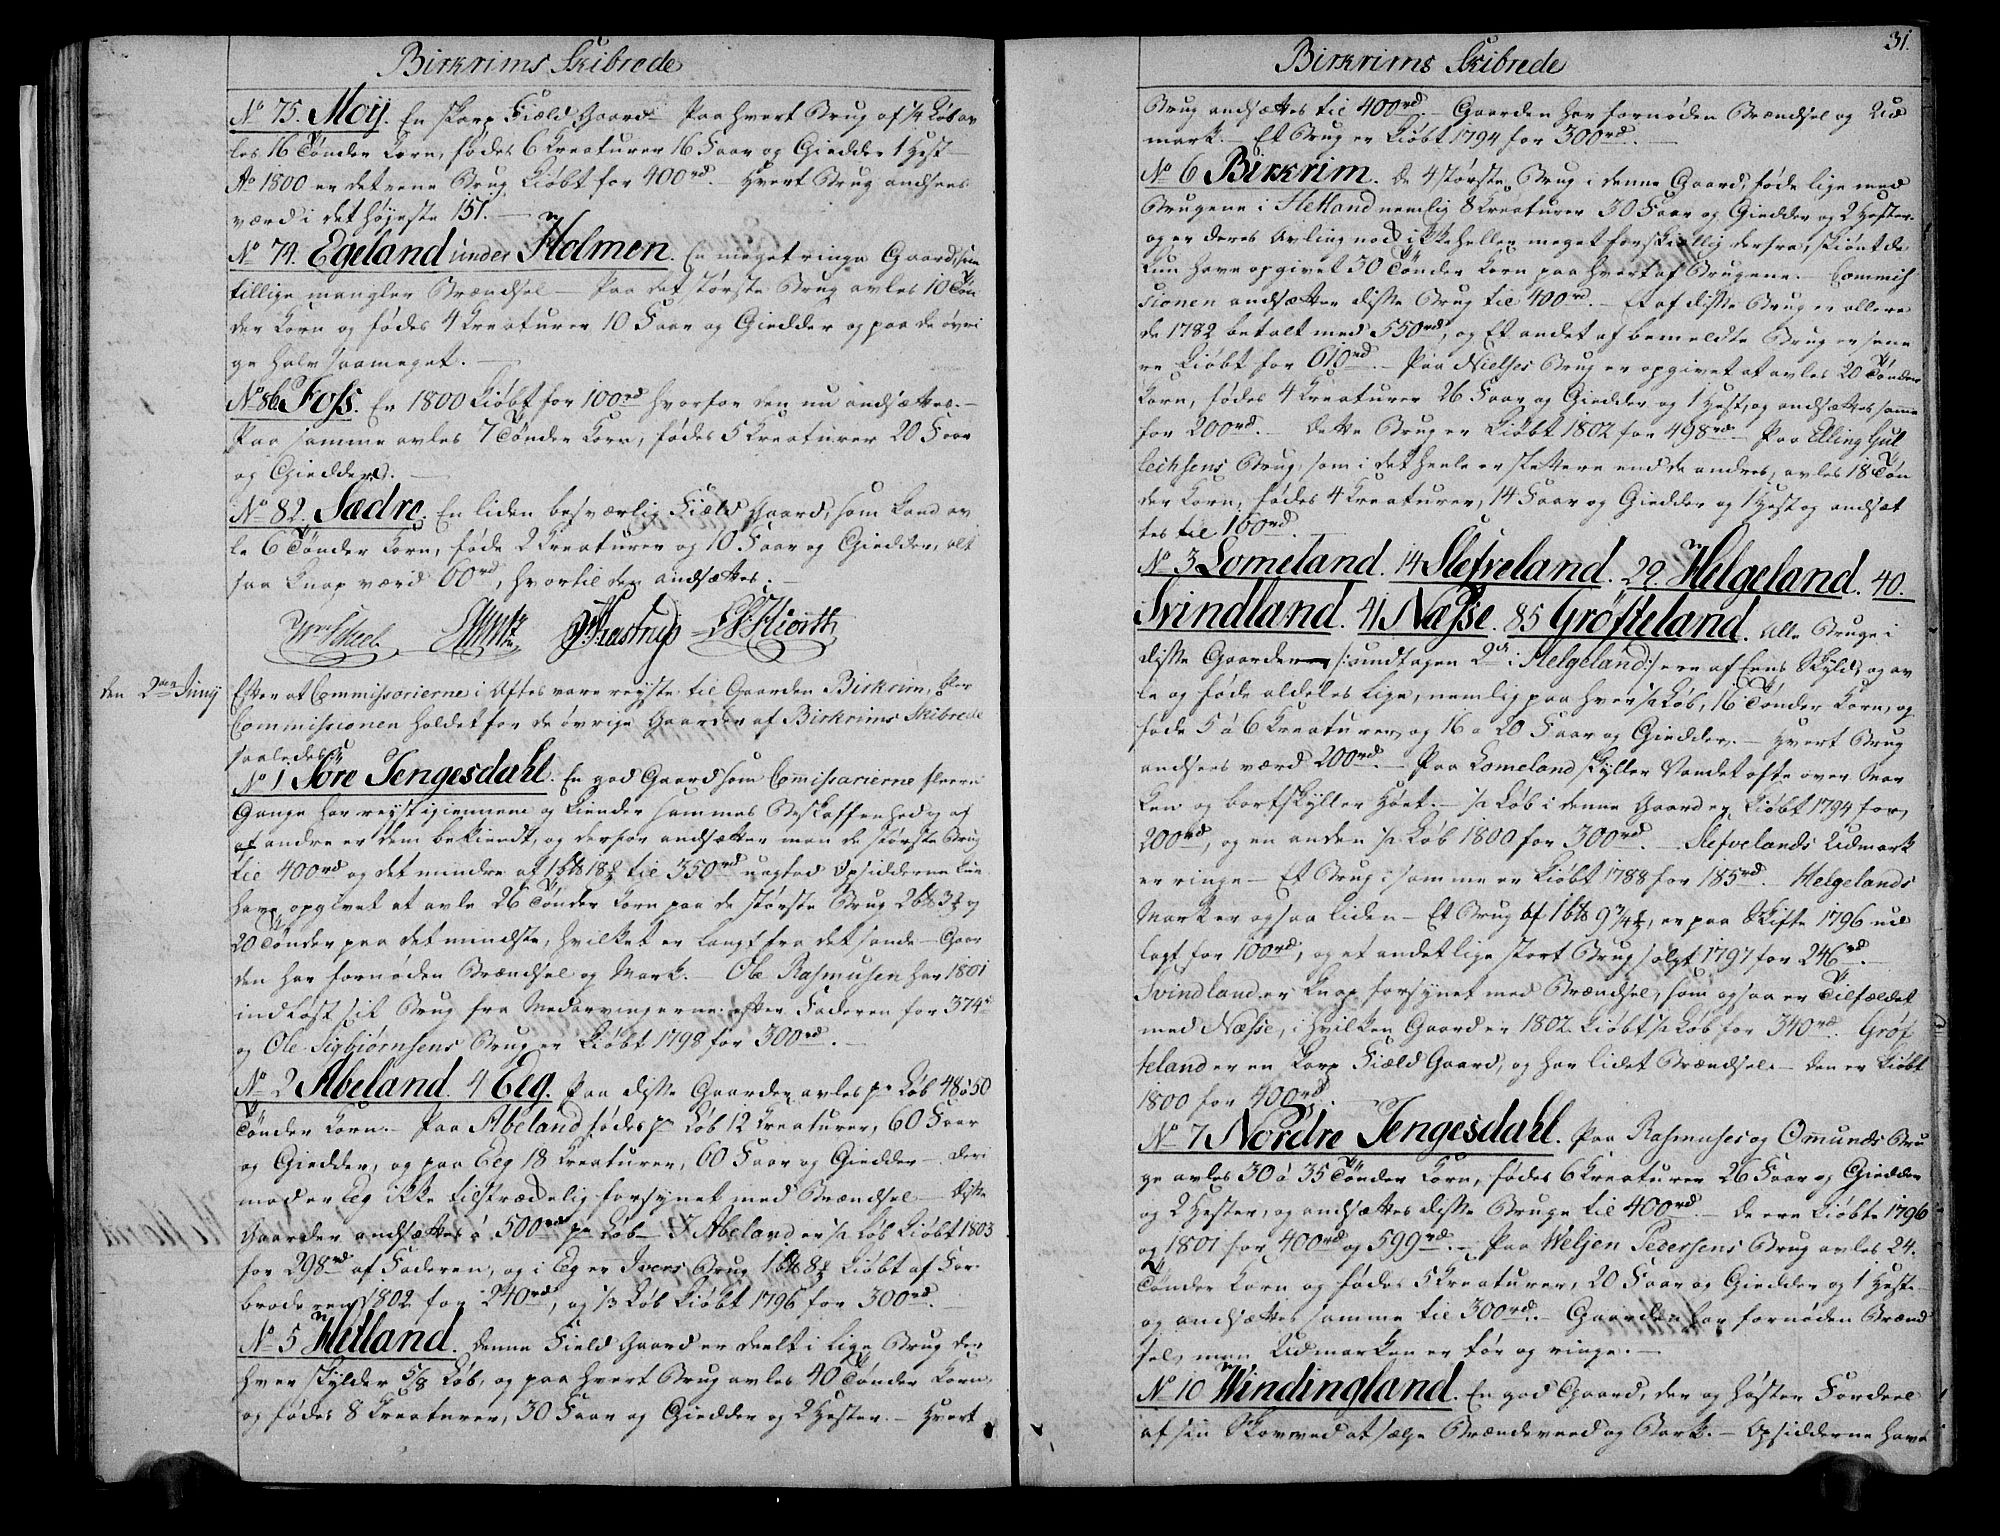 Birkrims Skibrede
No 75. Moij. En skarp Field Gaard – Paa hvert Brug af ¼ Løb av
les 16 Tønder Korn, fødes 6 Kreaturer 16 Faar og Giedder 1 Hest –
Ao 1800 er det eene Brug kiøbt for 400rd. – Hvert Brug ansees
værd i det højeste 151. –
No 74. Egeland under Holmen. En meget ringe Gaard, som
tillige mangler Brændsel – Paa det største Brug avles 10 Tøn
der Korn og fødes 4 Kreaturer 10 Faar og Giedder og paa de øvri
ge halv saameget. –
No 86. Foss. Er 1800 kiøbt for 100rd hvorfor den nu ansættes. –
Paa samme avles 7 Tønder Korn, fødes 5 Kreaturer 20 Faar
og Giedder. –
No 82. Sædre. En liden besværlig Field Gaard, som kand av
le 6 Tønder Korn, føde 2 Kreaturer og 10 Faar og Giedder, alt
saa knap værd 60rd, hvortil den andsættes. –
Scheel Aastrup Hiorth
den 2den Junij Efter at Commissarierne i Aftes vare reyste til Gaarden Birkrim, er
Commissionen holdet for de øvrige Gaarder af Birkrims Skibrede
saaledes:
No 1 Søre Tengesdahl. En god Gaard som Comissarierne fleere
Gange har reyst igiennem og kiender sammes Beskaffenhed af
at andre er dem bekiendt, og derfor andsætter man de største Brug
til 400rd og det mindre af 1 bℓb 18 til 350rd uagted Opsidderne kun
have opgivet at avle 26 Tønder Korn paa de største Brug 2 bℓb 3 og
20 Tønder paa det mindste, hvilket er langt fra det sande – Gaar
den har fornøden Brændsel og Mark. – Ole Rasmusen har 1801
indløst sit Brug fra Medarvingerne efter Faderen for 374rd
og Ole Sigbiørnsens Brug er kiøbt 1798 for 300rd. –
No 2 Abeland. 4 Eeg. Paa disse Gaarder avles pr Løb 48 à 50
Tønder Korn. – Paa Abeland fødes pr Løb 12 Kreaturer, 60 Faar
og Giedder, og paa Eeg 18 Kreaturer, 60 Faar og Giedder – Deri
mod er Eeg ikke tilstrædelig forsynet med Brændsel – Disse
Gaarder andsættes à 500rd pr Løb – I Abeland er ½ Løb kiøbt 1803
for 298rd af Faderen, og i Eeg er Ivers Brug 1 bℓb 8 kiøbt af Far
broderen 1802 for 240rd, og 1/3 Løb kiøbt 1796 for 300rd. –
No 5 Hetland. Denne Field Gaard er deelt i lige Brug der
hver skylder 5/8 Løb, og paa hvert Brug avles 40 Tønder Korn,
og fødes 8 Kreaturer, 30 Faar og Giedder og 2 Hester. – Hvert
31.
Birkrims Skibrede
Brug andsættes til 400rd. – Gaarden har fornøden Brændsel og Ud
mark. – Et Brug er kiøbt 1794 for 300rd. –
No 6 Birkrim. De 4 største Brug i denne Gaard, føde lige med
Brugene i Hetland nemlig 8 Kreaturer 30 Faar og Giedder og 2 Hester
og er deres Avling nok ikke heller meget forskiellig derfra, skiønt de
kun have opgivet 30 Tønder Korn paa hvert af Brugene. – Commis
sionen andsætter disse Brug til 400rd. – Et af disse Brug er allere
de 1782 betalt med 550rd, og Et andet af bemeldte Brug er sene
re kiøbt for 610rd. – Paa Nielses Brug er opgivet at avles 20 Tønder
Korn, fødes 4 Kreaturer 26 Faar og Giedder og 1 Hest, og andsættes samme
for 200rd. – Dette Brug er kiøbt 1802 for 498rd – Paa Elling Gul
leichsens Brug, som i det heele er slettere end de andres, avles 18 Tøn
der Korn, fødes 4 Kreaturer, 14 Faar og Giedder og 1 Hest og andsæt
tes til 160rd. –
No 3 Lomeland. 14 Slefveland. 29. Helgeland. 40.
Svindland. 41 Næsse. 85 Grøfteland. Alle Bruge i
disse Gaarder /: undtagen 2de i Helgeland :/ ere af Eens Skyld, og av
le og føde aldeles lige, nemlig paa hver ½ Løb, 16 Tønder Korn, og
føde 5 à 6 Kreaturer, og 16 a 20 Faar og Giedder. – Hvert Brug
andsees værd 200rd. – Paa Lomeland skyller Vandet ofte over Mar
ken og bortskyller Høet. – ½ Løb i denne Gaard er kiøbt 1794 for
200rd, og en anden ½ Løb 1800 for 300rd. – Slefvelands Udmark
er ringe – Et Brug i samme er kiøbt 1788 for 185rd. Helgelands
Mark er ogsaa liden – Et Brug af 1 bℓb 9¾, er paa Skifte 1796 ud
lagt for 100rd, og et andet lige stort Brug solgt 1797 for 246rd. –
Svindland er knap forsynet med Brændsel, som ogsaa er Tilfældet
med Næsse, i hvilken Gaard er 1802 kiøbt ½ Løb for 340rd. Grøf
teland er en skarp Field Gaard, og har lidet Brændsel. – den er kiøbt
1800 for 400rd. –
No 7 Nordre Tengesdahl. Paa Rasmuses og Omunds Bru
ge avles 30 à 35 Tønder Korn, fødes 6 Kreaturer 26 Faar og Giedder
og 2 Hester, og andsættes disse Bruge til 400rd. – De ere kiøbte 1796
og 1801 for 400rd og 599rd. – Paa Weljen Pedersens Brug avles 24.
Tønder Korn og fødes 5 Kreaturer, 20 Faar og Giedder og 1 Hest
og andsættes samme til 300rd. – Gaarden har fornøden Brænd
sel, men Udmarken er tør og ringe. –
No 10 Windingland. En god Gaard, der og høster Fordeel
af sin Skov ved at sælge Brændeveed og Bark. – Opsidderne have